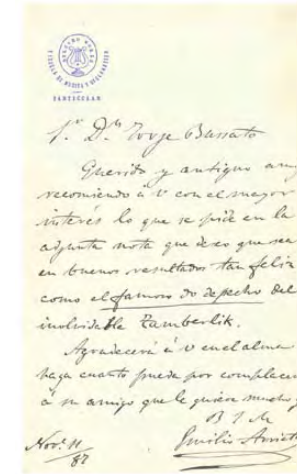 ESCUELA DE MUSICA Y DECLAMACION
PARTICULAR
Sr. Dn. Jorge Bussato
Querido y antiguo amig
recomiendo á V con el mayor
interés lo que se pide en la
adjunta nota que deseo que sea
en buenos resultados tan feliz
como el famoso do de pecho del
inolvidable Tamberlik.
Agradeceré á V en el alma
haga cuanto pueda por complacer
á su amigo que le quiere mucho y
B S M
Emilio Arrieta
Nov. 11/87